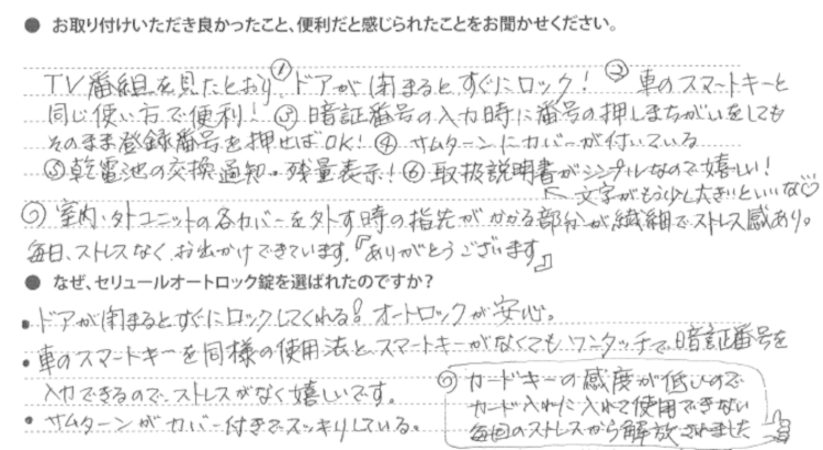 ● お取り付けいただき良かったこと、便利だと感じられたことをお聞かせください。
TV番組を見たとおり ①ドアが閉まるとすぐにロック! ②車のスマートキーと
同じ使い方で便利! ③暗証番号の入力時に番号の押しまちがいをしても
そのまま登録番号を押せばOK! ④サムターンにカバーが付いている
⑤乾電池の交換通知・残量表示! ⑥取扱説明書がシンプルなので嬉しい!
↖文字がもう少し大きいといいな♡
⑦室内・外ユニットの各カバーを外す時の指先がかかる部分が繊細でストレス感あり。
毎日、ストレスなくお出かけできています。『ありがとうございます』
● なぜ、セリュールオートロック錠を選ばれたのですか?
・ドアが閉まるとすぐにロックしてくれる! オートロックが安心。
・車のスマートキーを同様の使用法と、スマートキーがなくてもワンタッチで暗証番号を
入力できるので、ストレスがなく嬉しいです。
・サムターンがカバー付きでスッキリしている。
カードキーの感度が低いので
カード入れに入れて使用できない
毎回のストレスから解放されました